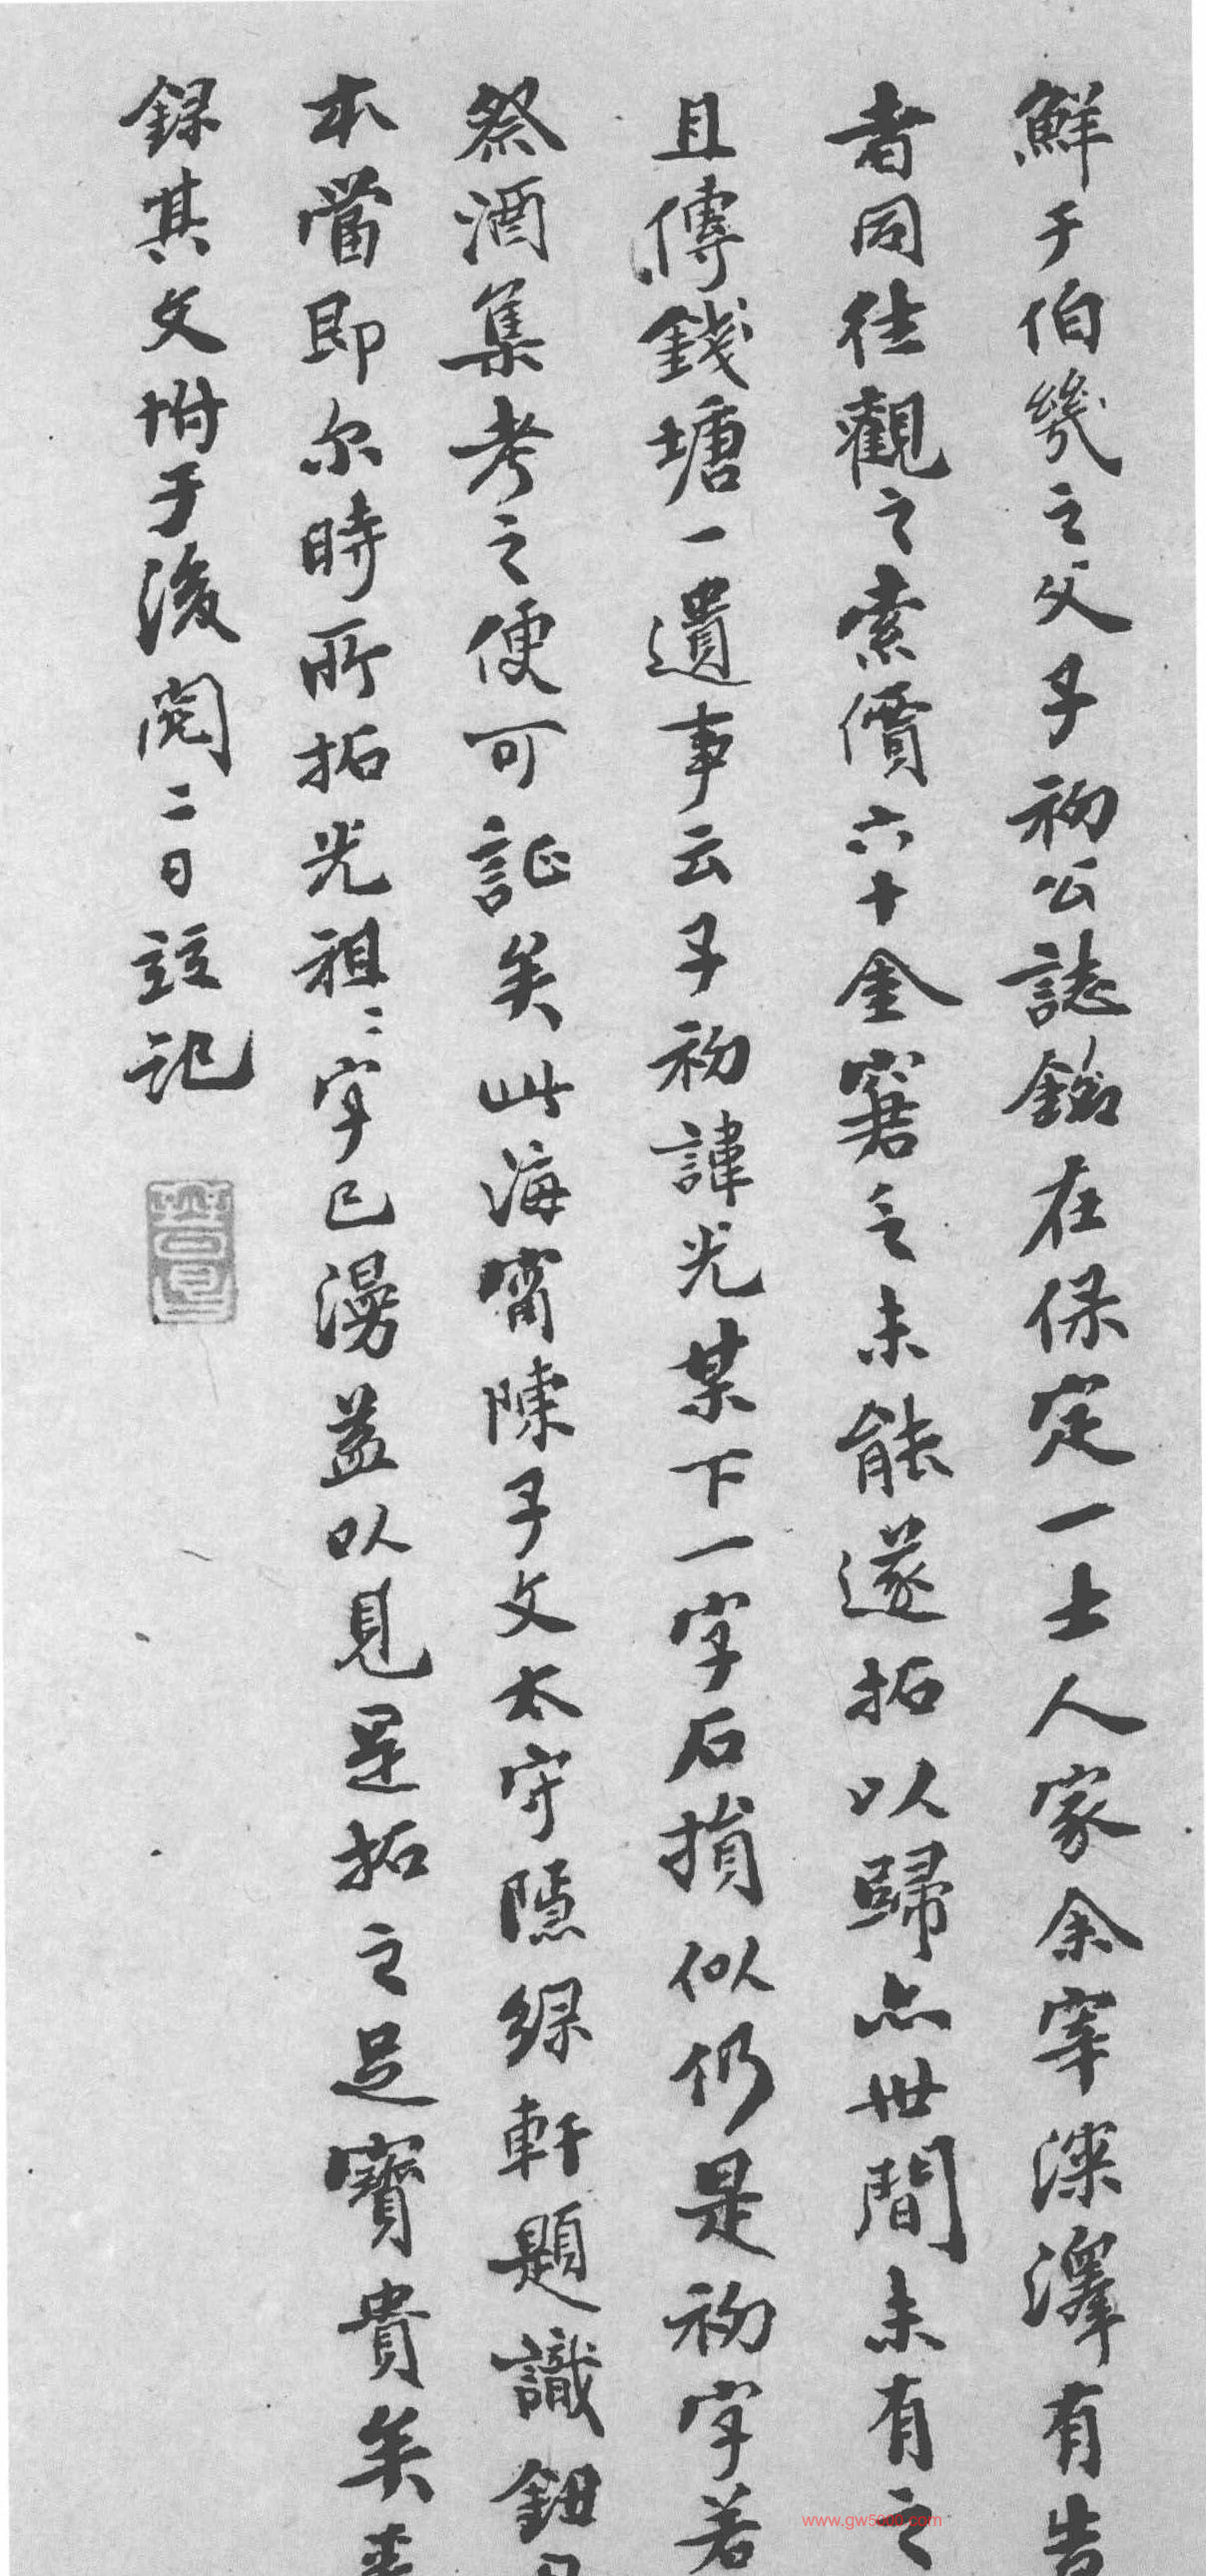 鮮于伯幾之父子初公誌銘在保定一士人家余宰深澤有告
者同往觀之索價六十金窘之未能遂拓以歸亦世間未有之
且傳錢塘一遺事云子初諱光某下一字石損似仍是初字若
祭酒集考之便可証矣此海甯陳子文太守隱綠軒題識鈕
本當即尔時所拓光祖二字已漫益以見是拓之足寶貴矣
錄其文坿于後閲二日註記
www.gw5000.com